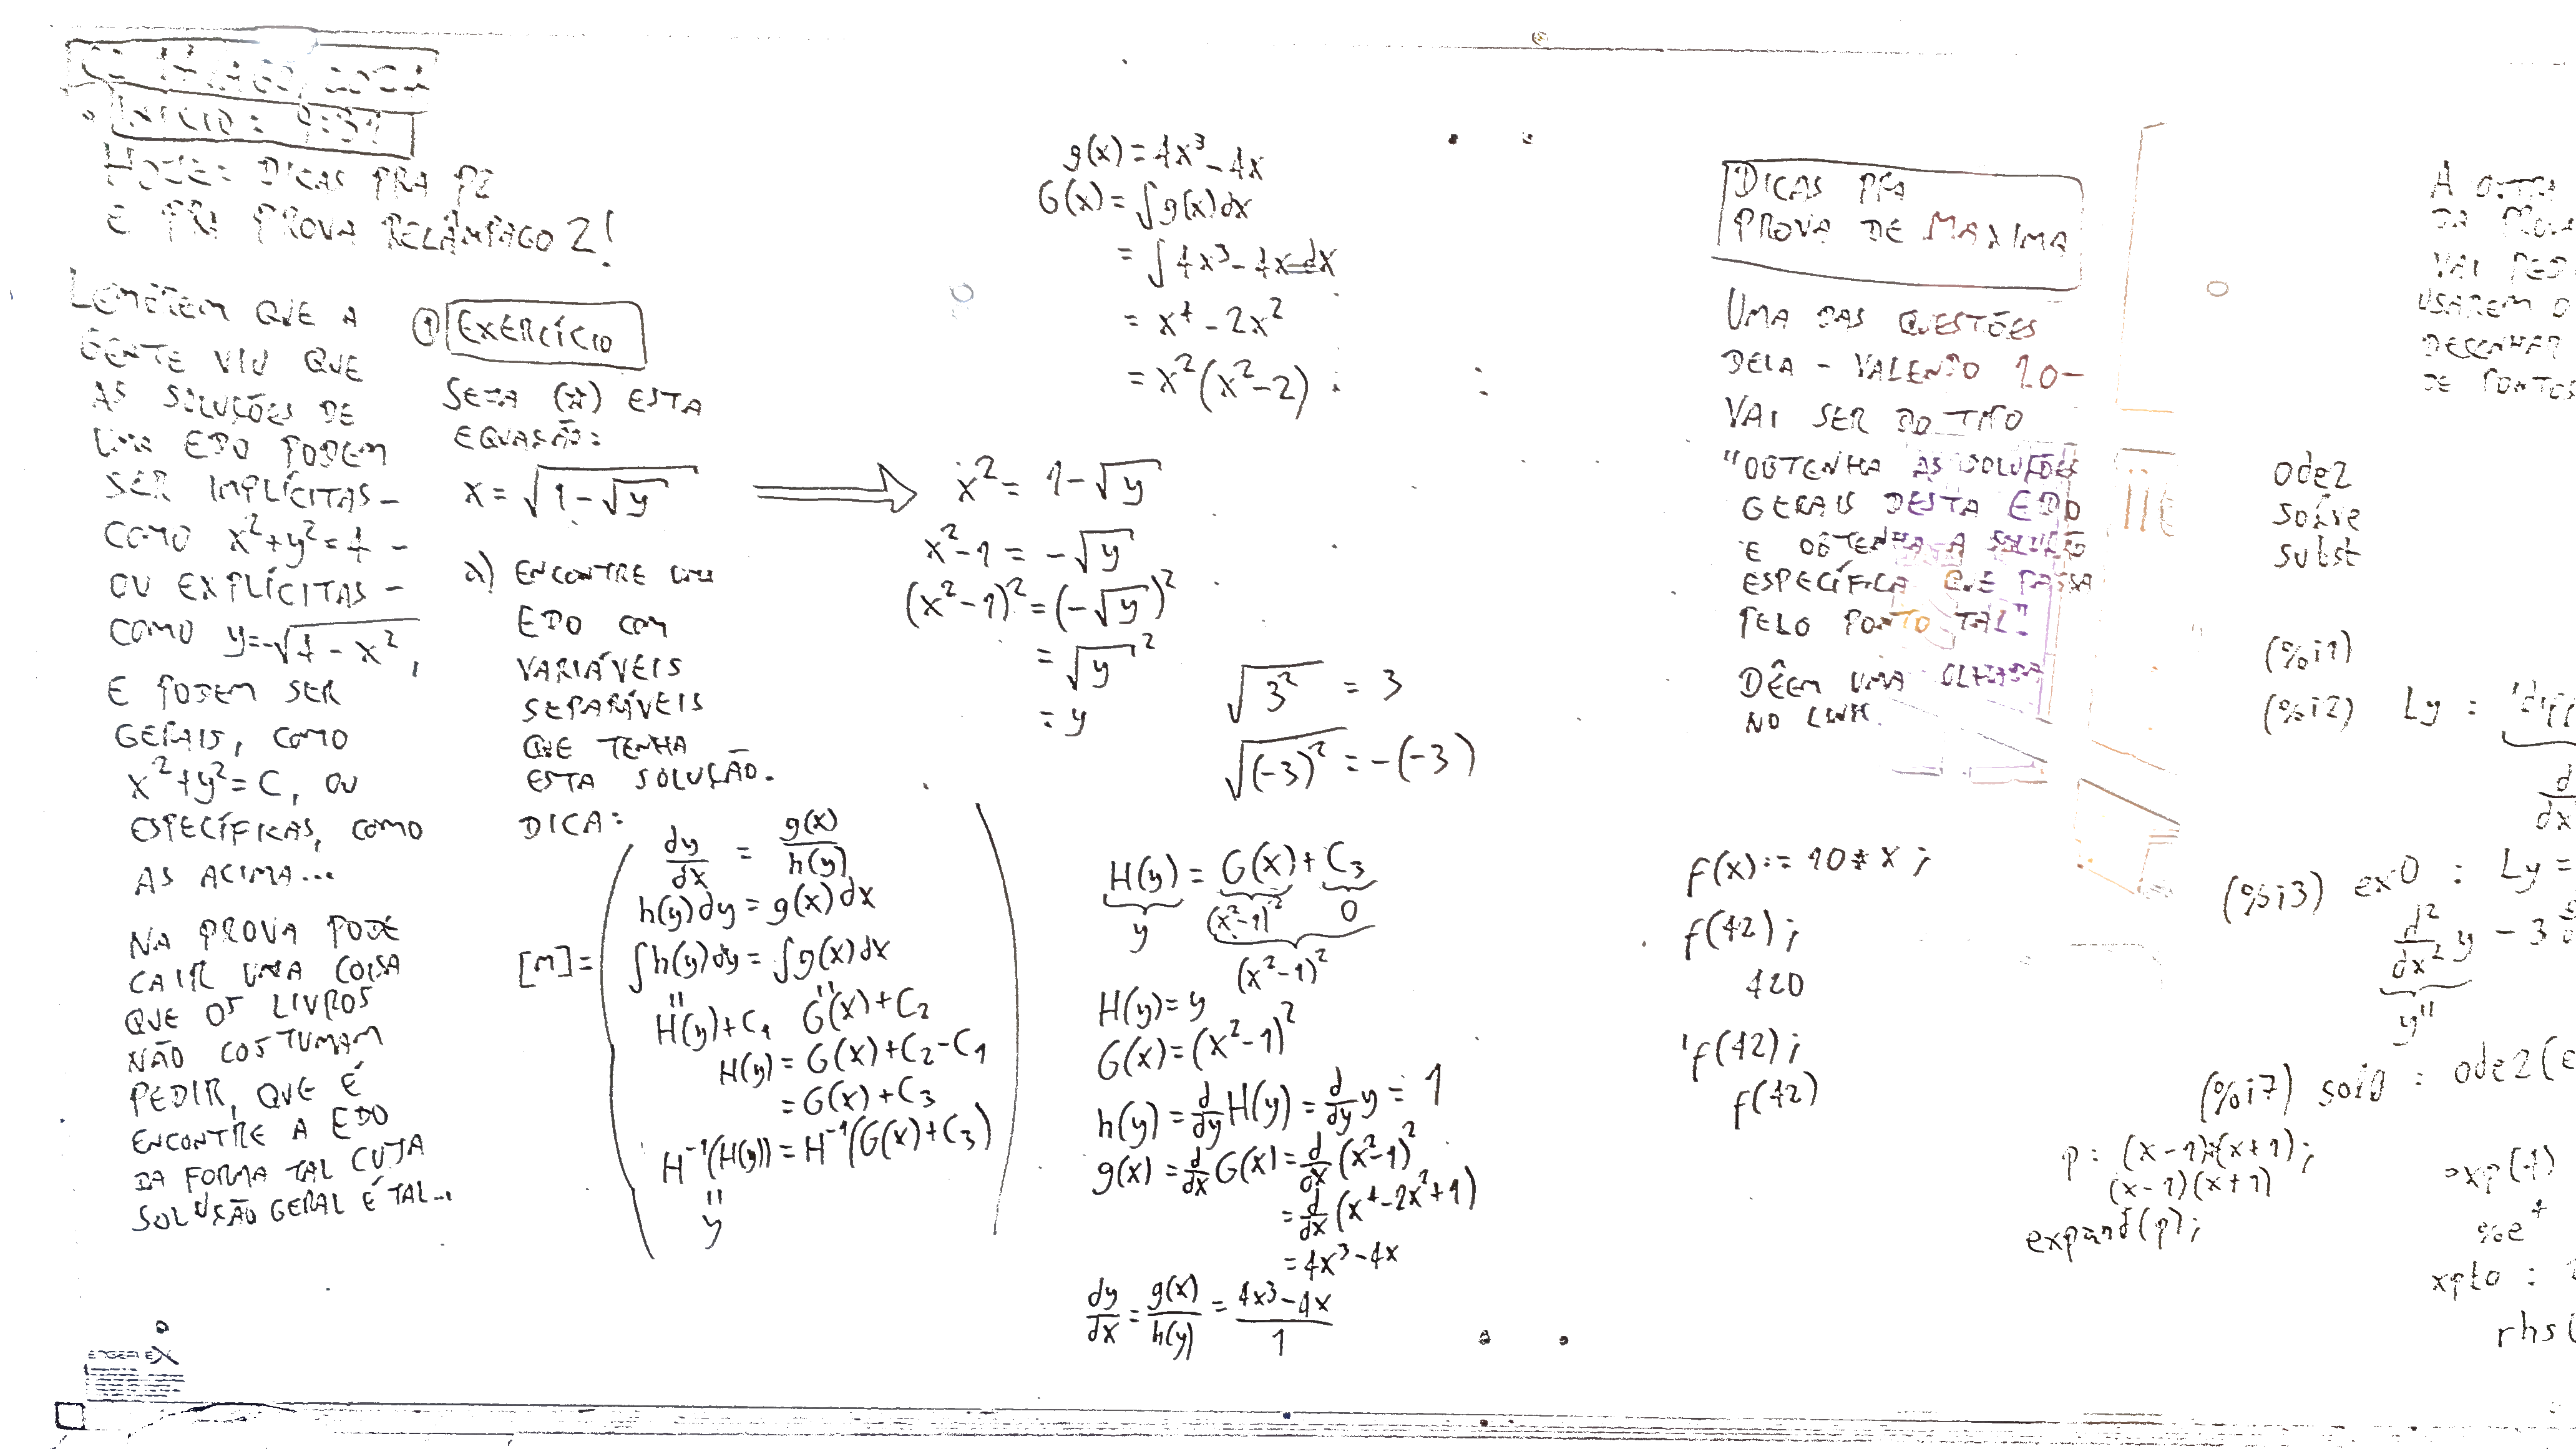 INÍCIO: 9:37
HOJE: DICAS PRA P2
E PRA PROVA RELÂMPAGO 2!
LEMBREM QUE A
GENTE VIU QUE
AS SOLUÇÕES DE
UMA EDO PODEM
SER IMPLÍCITAS –
COMO x²+y²=4 –
OU EXPLÍCITAS –
COMO y=-√(4-x²),
E PODEM SER
GERAIS, COMO
x²+y²=C, OU
ESPECÍFICAS, COMO
AS ACIMA...
NA PROVA PODE
CAIR UMA COISA
QUE OS LIVROS
NÃO COSTUMAM
PEDIR, QUE É
ENCONTRE A EDO
DA FORMA TAL CUJA
SOLUSÃO GERAL É TAL...
① EXERCÍCIO
SEJA (*) ESTA
EQUASÃO:
x = √(1-√y) ⟹
a) ENCONTRE UMA
EDO COM
VARIÁVEIS
SEPARÁVEIS
QUE TENHA
ESTA SOLUÇÃO.
DICA:
dy/dx = g(x)/h(y)
h(y)dy = g(x)dx
[M] = ∫h(y)dy = ∫g(x)dx
" "
H(y)+C₁ G(x)+C₂
H(y) = G(x)+C₂-C₁
= G(x)+C₃
H⁻¹(H(y)) = H⁻¹(G(x)+C₃)
"
y
g(x) = 4x³-4x
G(x) = ∫g(x)dx
= ∫4x³-4x dx
= x⁴-2x²
= x²(x²-2)
x² = 1-√y
x²-1 = -√y
(x²-1)² = (-√y)²
= √y²
= y
√(3²) = 3
√((-3)²) = -(-3)
H(y) = G(x)+C₃
y (x²-1)² 0
(x²-1)²
H(y) = y
G(x) = (x²-1)²
h(y) = d/dy H(y) = d/dy y = 1
g(x) = d/dx G(x) = d/dx (x²-1)²
= d/dx (x⁴-2x²+1)
= 4x³-4x
dy/dx = g(x)/h(y) = (4x³-4x)/1
DICAS PRA
PROVA DE MAXIMA
UMA DAS QUESTÕES
DELA – VALENDO 1.0 –
VAI SER DO TIPO
"OBTENHA AS SOLUÇÕES
GERAIS DESTA EDO
E OBTENHA A SOLUÇÃO
ESPECÍFICA QUE PASSA
PELO PONTO TAL".
DÊEM UMA OLHADA
NO LINK.
f(x):=10*x;
f(42);
420
'f(42);
f(42)
A OUTRA
DA PROVA
VAI PED
USAREM O
DESENHAR
DE PONTOS
ode2
solve
subst
(%i1)
(%i2) Ly : 'diff
d/dx
(%i3) ex0 : Ly =
d²/dx² y - 3
y''
(%i7) sol0 : ode2(e
p: (x-1)*(x+1);
(x-1)(x+1)
expand(p);
exp(4)
%e⁴
xpto :
rhs(